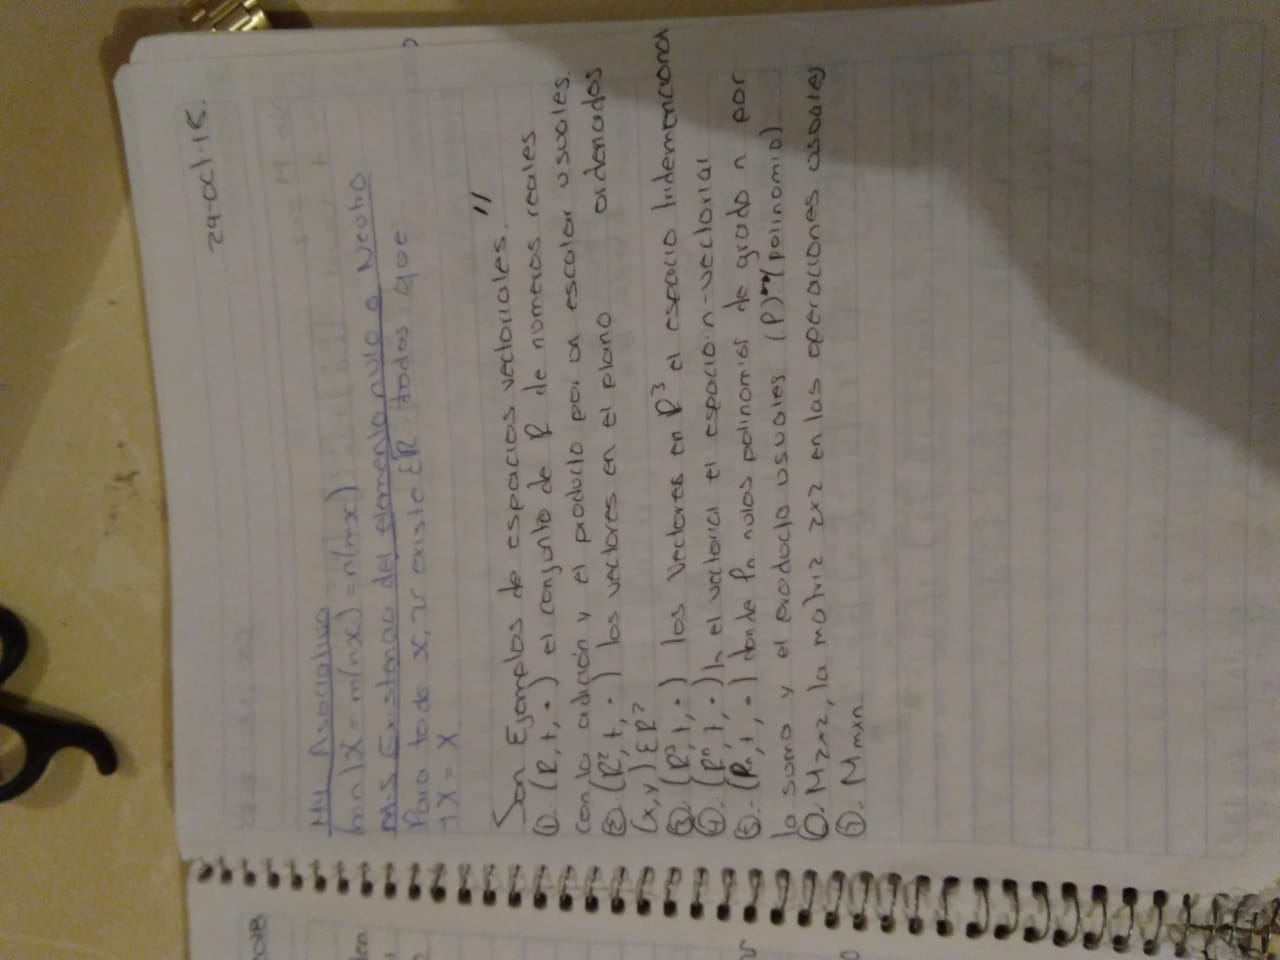 29-oct-18.
M4 Asociativo
(mn)x = m(nx) = n(mx)
M-5 Existencia del elemento nulo o Neutro
Para todo x, v existe E R todos que
1X = X
Son Ejemplos de espacios vectoriales."
①. (R, +, •) el conjunto de R de numeros reales
con la adición y el producto por un escalar usuales.
②. (R², +, •) los vectores en el plano ordenados
(x,y) E R²
③. (R³, +, •) los vectores en R³ el espacio tridemencional
④. (Rⁿ, +, •) el vectorial el espacio n-vectorial
⑤.- (Pn, +, •) donde Pn polinomios de grado n por
la suma y el producto usuales (P) (polinomio)
⑥. M2x2, la matriz 2x2 en las operaciones usuales
⑦. Mmxn